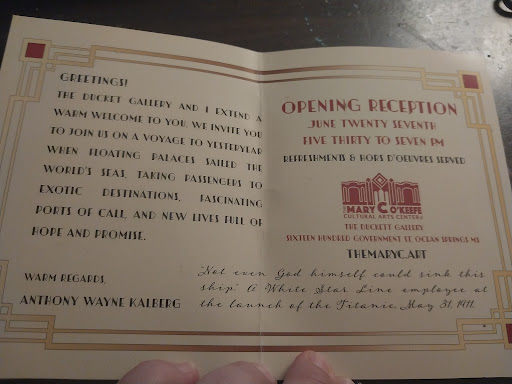 GREETINGS!
THE DUCKET GALLERY AND I EXTEND A
WARM WELCOME TO YOU. WE INVITE YOU
TO JOIN US ON A VOYAGE TO YESTERYEAR
WHEN FLOATING PALACES SAILED THE
WORLD'S SEAS, TAKING PASSENGERS TO
EXOTIC DESTINATIONS, FASCINATING
PORTS OF CALL, AND NEW LIVES FULL OF
HOPE AND PROMISE.
WARM REGARDS,
ANTHONY WAYNE KALBERG
OPENING RECEPTION
JUNE TWENTY SEVENTH
FIVE THIRTY TO SEVEN PM
REFRESHMENTS & HORS D'OEUVRES SERVED
THE MARY C O'KEEFE
CULTURAL ARTS CENTER
THE DUCKETT GALLERY
SIXTEEN HUNDRED GOVERNMENT ST, OCEAN SPRINGS MS
THEMARYC.ART
"Not even God himself could sink this
ship." A White Star Line employee at
the launch of the Titanic, May 31, 1911.